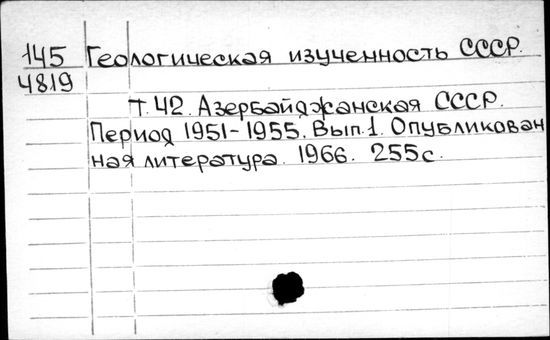 145 Геологическая изученность СССР.
4819
Т. 42. Азербайджанская ССР.
Период 1951-1955. Вып. 1. Опубликован
ная литература. 1966. 255 с.